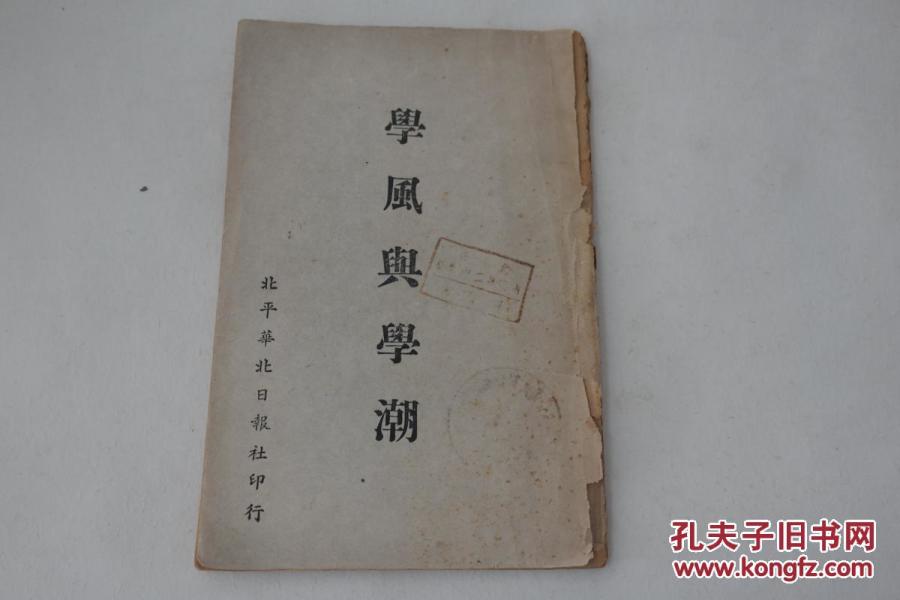 學風與學潮
北平華北日報社印行
孔夫子旧书网
www.kongfz.com